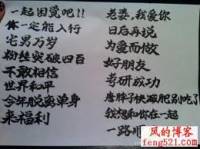 一起困觉吧!!
体一定能入行
宅男万岁
粉丝突破四百
不敢相信
世界和平
今年脱离单身
来福利
老婆,我爱你
日后再说
为爱而做
好朋友
考研成功
唐胖子快减肥别吃了
我想和你在一起
一路
风的博客
feng521.com